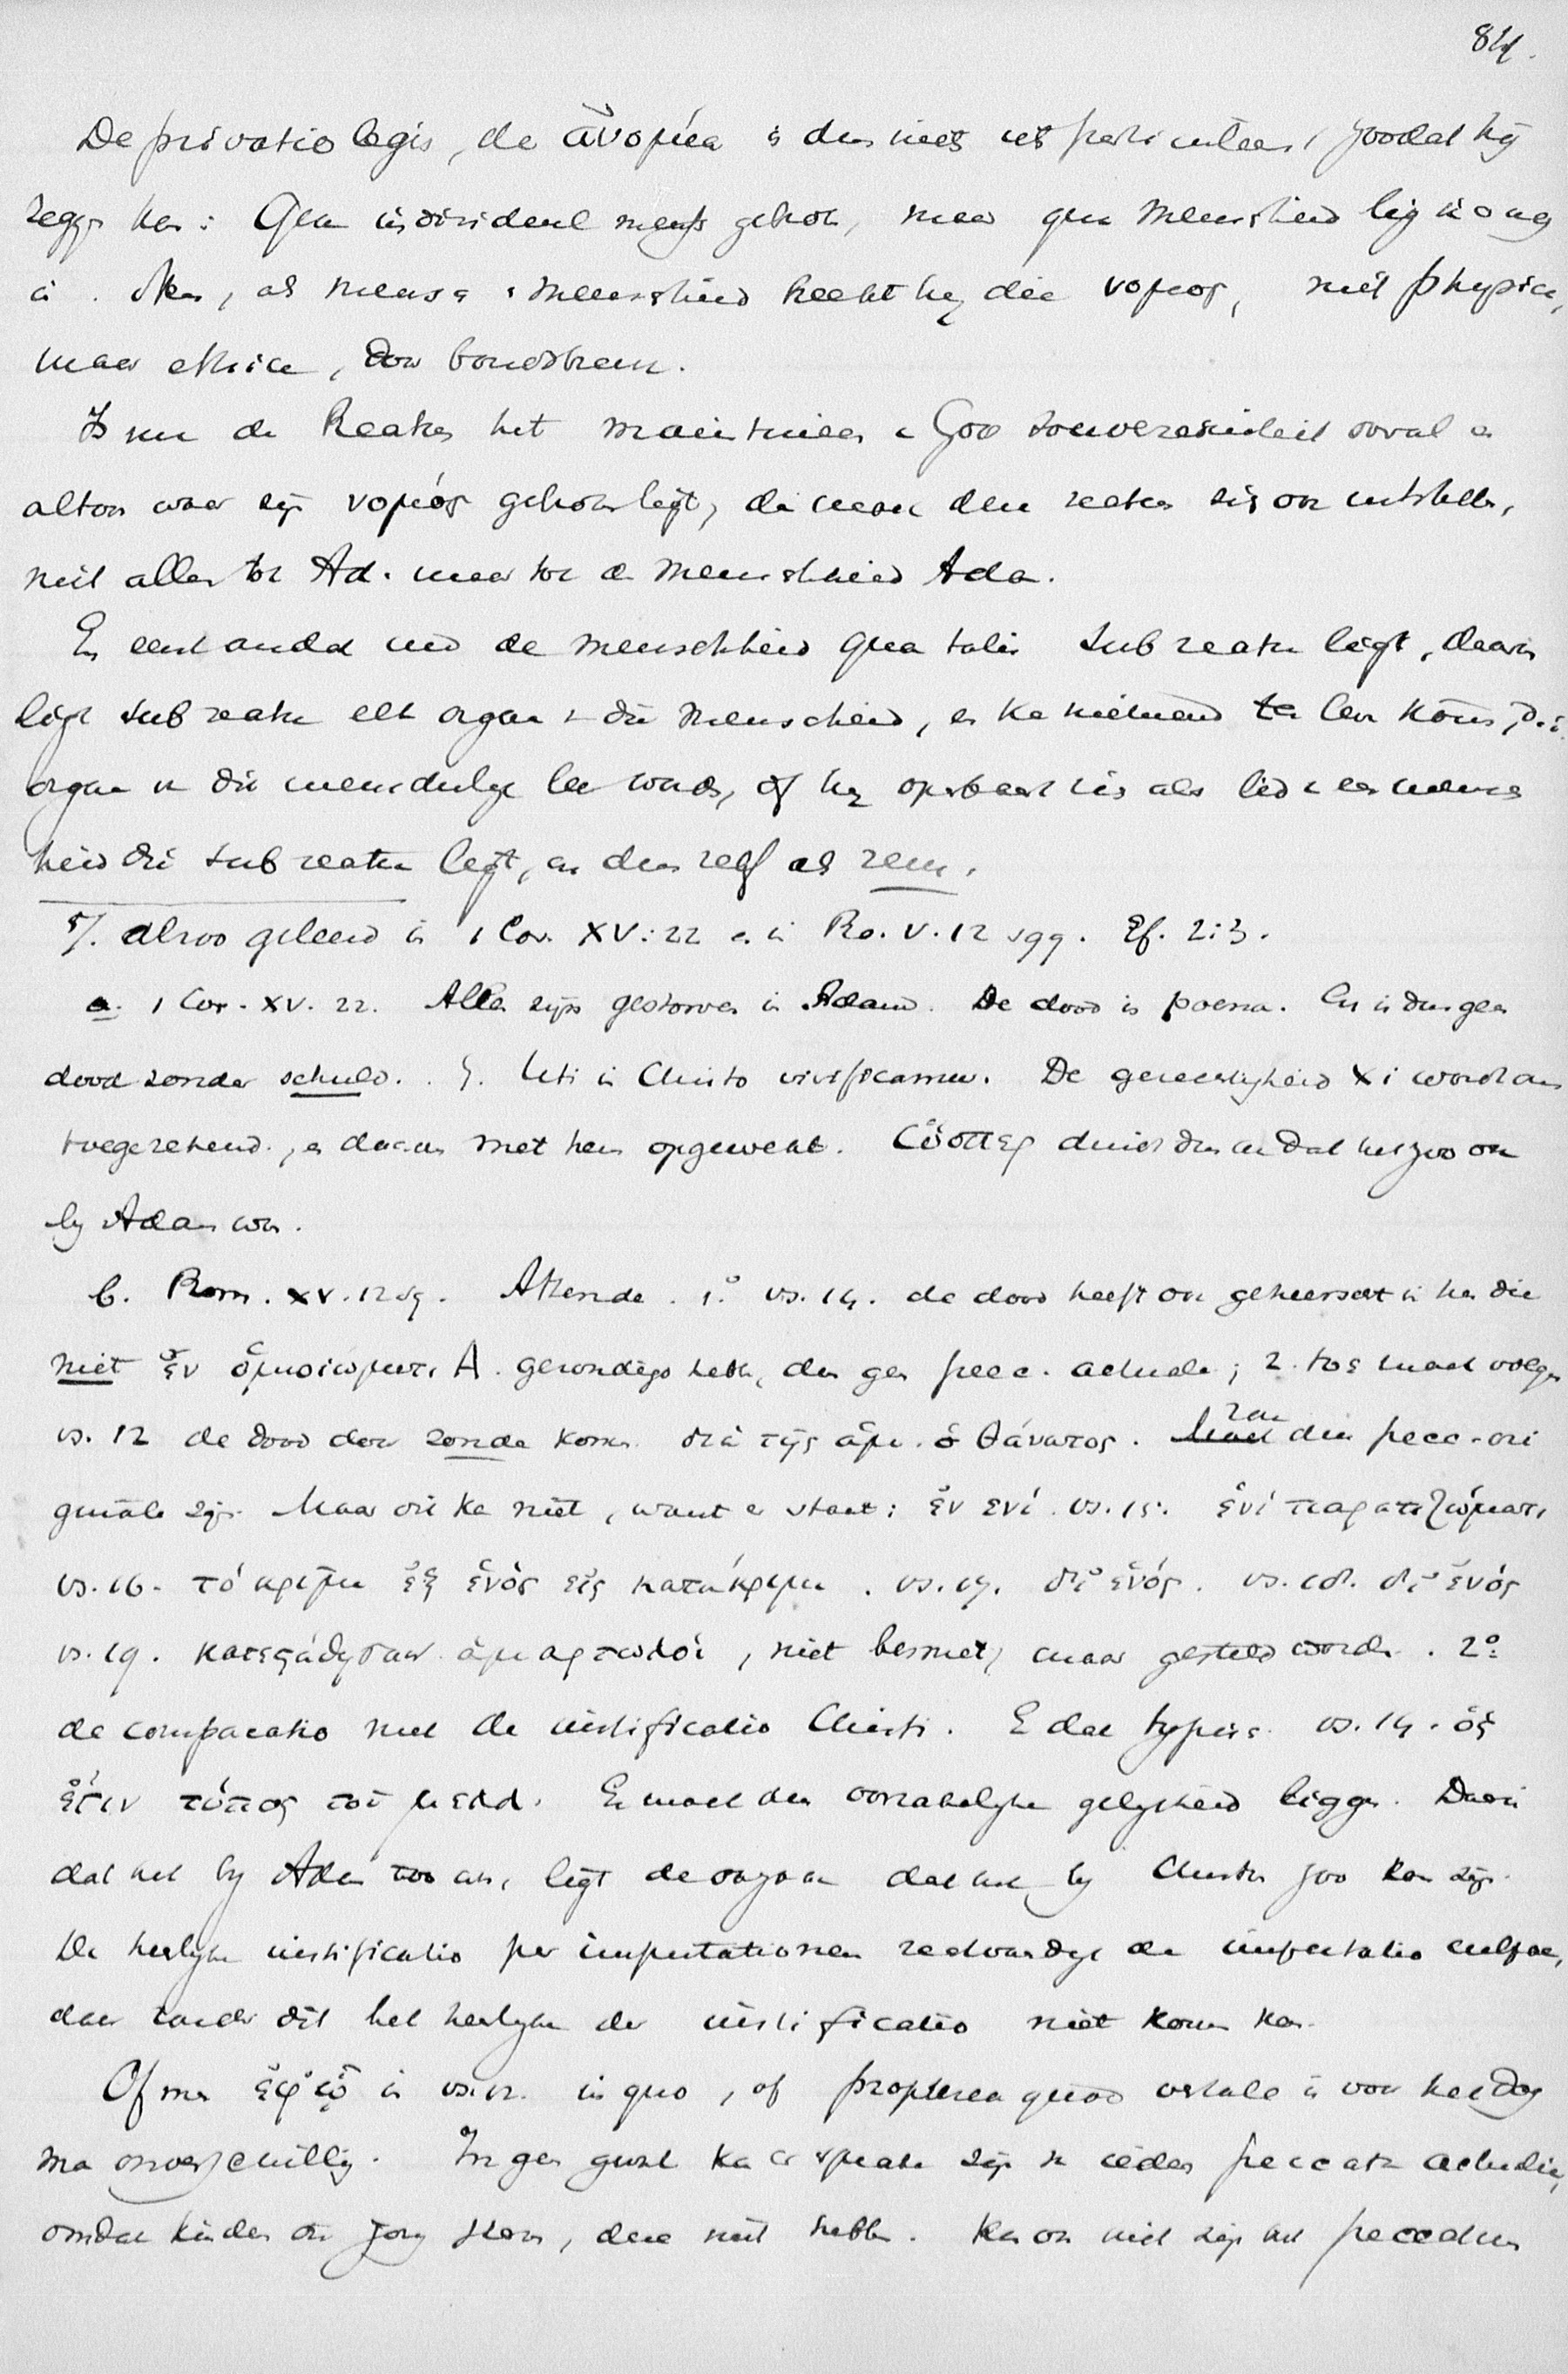 84.
De privatio legis, de ἀνομία is dus niet iets particuliers, zoodat hij
zegge kan: Qua individueel mensch gebor, maar qua menschheid lig ik
Nee, als mensch menschheid heeft hij die νομος, niet physice,
maar ethice, door bondsbreu.
Is nu de Reatus het maintineer Gods souvereiniteit ooral
altoos waar zijn νομός gebroken ligt, dan moet den reatus zich ook uitstrekk,
niet alleen tot Ad. maar tot de menschheid Ada.
En eenl de menschheid qua talis sub reatu ligt, daarin
ligt sub reatu elk orgaan v die menschheid, en ka niemand te leve kome, d.i.
orgaan in die menschelijke lev word, of hij openbaart zich als lid v een mensch
heid die sub reatu ligt, en dus zelf als reus.
5/. Alzoo geleerd in 1 Cor. XV:22 en in Ro. V. 12 sqq. Ef. 2:3.
a. 1 Cor. XV. 22. Alle zijn gestorven in Adam. De dood is poena. Er is dus geen
dood zonder schuld. Uti in Christo vivificamur. De gerechtigheid Xi wordt ons
toegerekend, en daarom met hem opgewekt. ὥσπερ duidt dus aan dat het zoo ook
bij Adam was.
b. Rom. XV. 12 sq. Attende. 1.° vs. 14. de dood heeft ook geheerscht in hen die
niet ἐν ὁμοιώματι A. gezondigd hebb, dus gee pecc. actuale; 2. toch moet volgens
vs. 12 de dood door zonde kome. διὰ τῆς ἁμ. ὁ θάνατος. zou die pecc. ori
ginale zijn. Maar dit ka niet, want er staat: ἐν ἑνί. vs. 15. ἑνί παραπτώματι
vs. 16. τό κριμα ἐξ ἑνός εἰς κατάκριμα. vs. 17. δι' ἑνός. vs. 18. δι' ἑνός
vs. 19. κατεστάθησαν ἁμαρτωλοί, niet besmet, maar gesteld word. 2°.
de comparatio met de iustificatio Christi. E dae typice. vs. 14. ὅς
ἐστιν τύπος τοῦ μελλ. Er moet dus oorzakelijke gelijkheid ligge. Daarin
dat het bij Adam zoo was, ligt de oorzaak dat het bij Christus zoo kan zijn.
De heerlijke iustificatio per imputationem rechtvaardigt de imputatio culpae,
daar zonder dit het heerlijke der iustificatio niet kome kan.
Of me ἐφ' ᾧ in vs. 12. in quo, of propterea quod vertale is voor het dog
ma onverschillig. In gee geval ka er sprake zijn v ieders peccata actualia,
omdat kinder die jong sterv, deze niet hebb. Ka ook niet zijn het peccatum